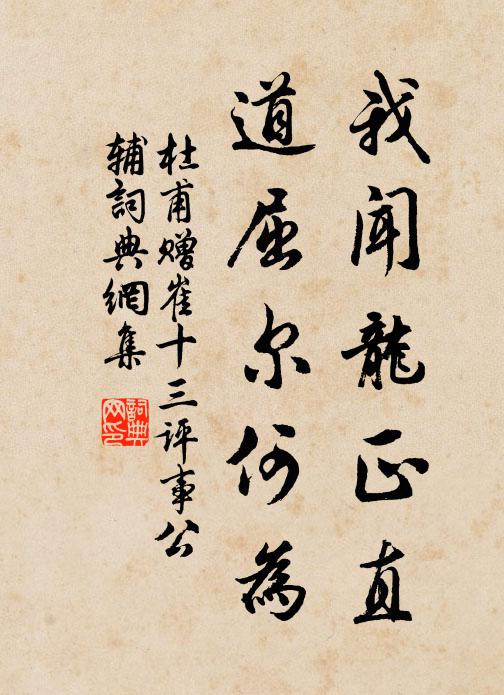 我闻龍正直
道屈尔何為
杜甫赠崔十三评事公
辅詞典網集
詞典
网印